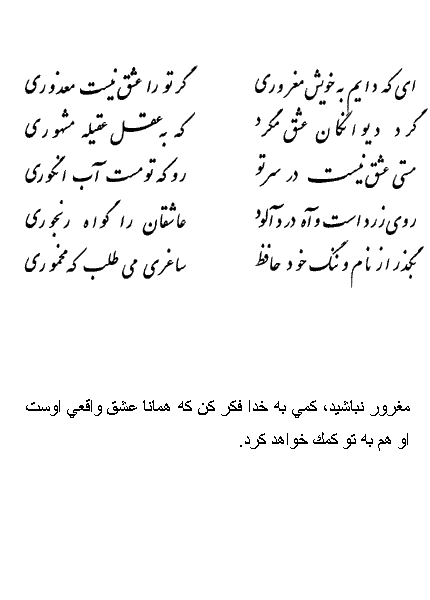 ای که دایم به خویش مغروری گر تو را عشق نیست معذوری
گرد دیوانگان عشق مگرد که به عقل عقیله مشهوری
مستی عشق نیست در سر تو رو که تو مست آب انگوری
روی زرد است و آه درد آلود عاشقان را گواه رنجوری
بگذر از نام و ننگ خود حافظ ساغری می طلب که مخموری
مغرور نباشيد، كمي به خدا فكر كن كه همانا عشق واقعي اوست
او هم به تو كمك خواهد كرد.